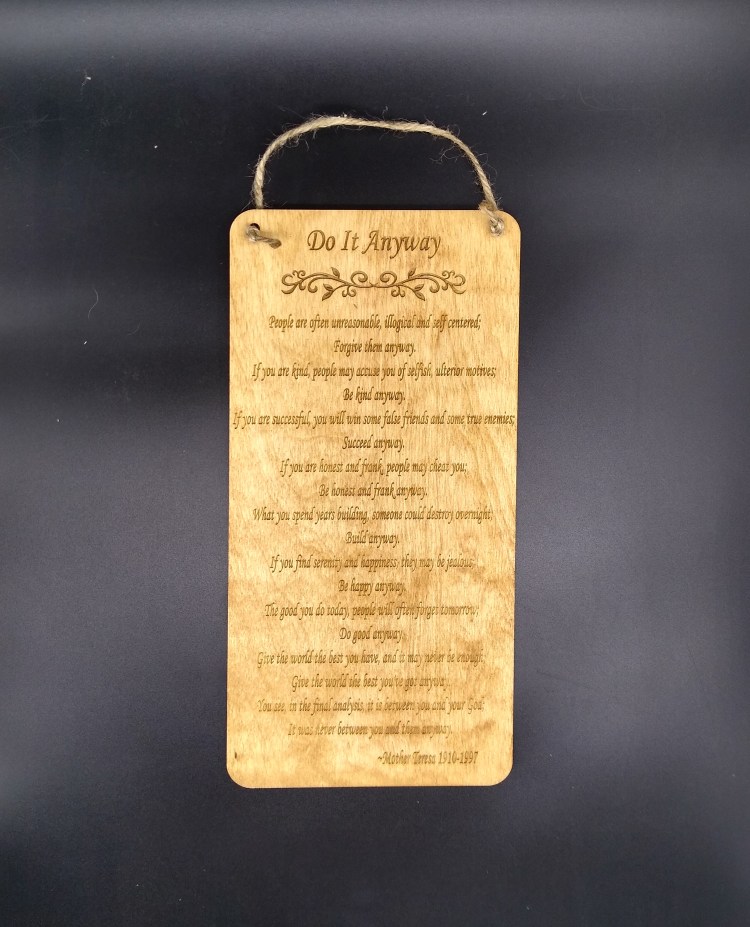 Do It Anyway
People are often unreasonable, illogical and self centered;
Forgive them anyway.
If you are kind, people may accuse you of selfish, ulterior motives;
Be kind anyway.
If you are successful, you will win some false friends and some true enemies;
Succeed anyway.
If you are honest and frank, people may cheat you;
Be honest and frank anyway.
What you spend years building, someone could destroy overnight;
Build anyway.
If you find serenity and happiness, they may be jealous;
Be happy anyway.
The good you do today, people will often forget tomorrow;
Do good anyway.
Give the world the best you have, and it may never be enough;
Give the world the best you've got anyway.
You see, in the final analysis, it is between you and your God;
It was never between you and them anyway.
~Mother Teresa 1910-1997